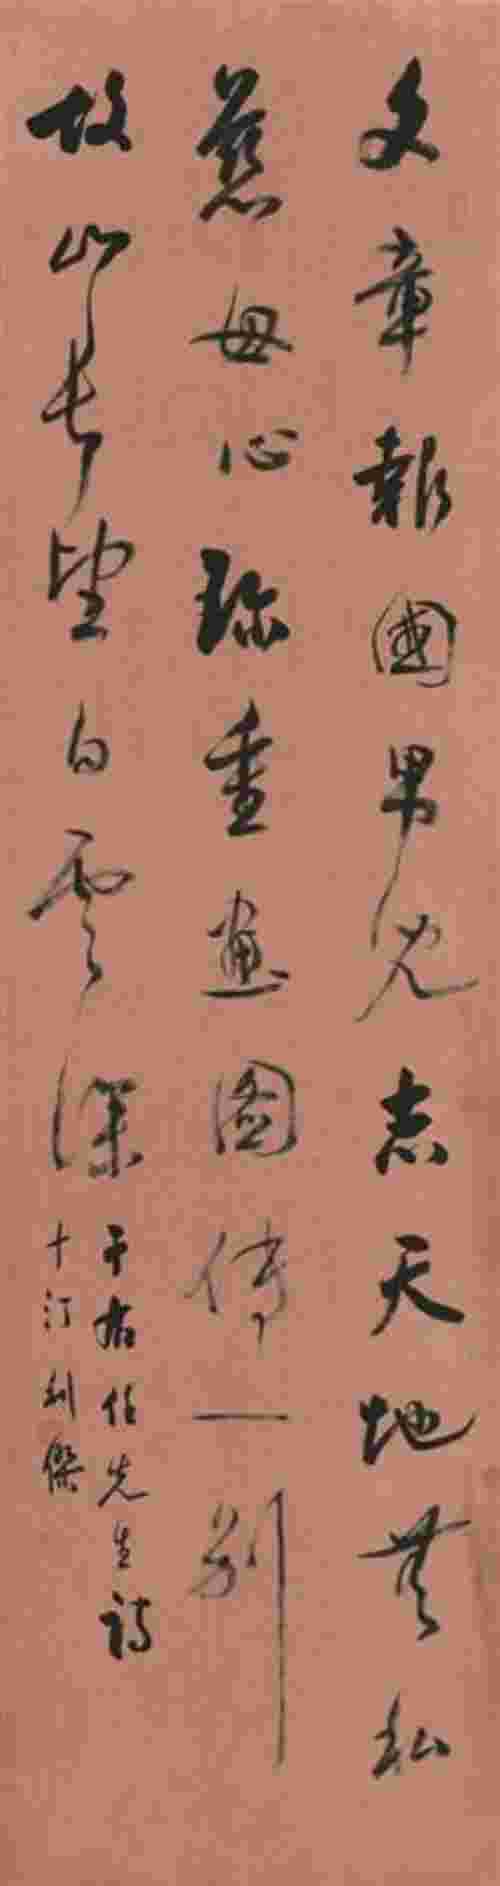 文章報國男兒志天地無私
慈母心珍重畫圖傳一別
故山長望白雲深
于右任先生詩
十汀利傑